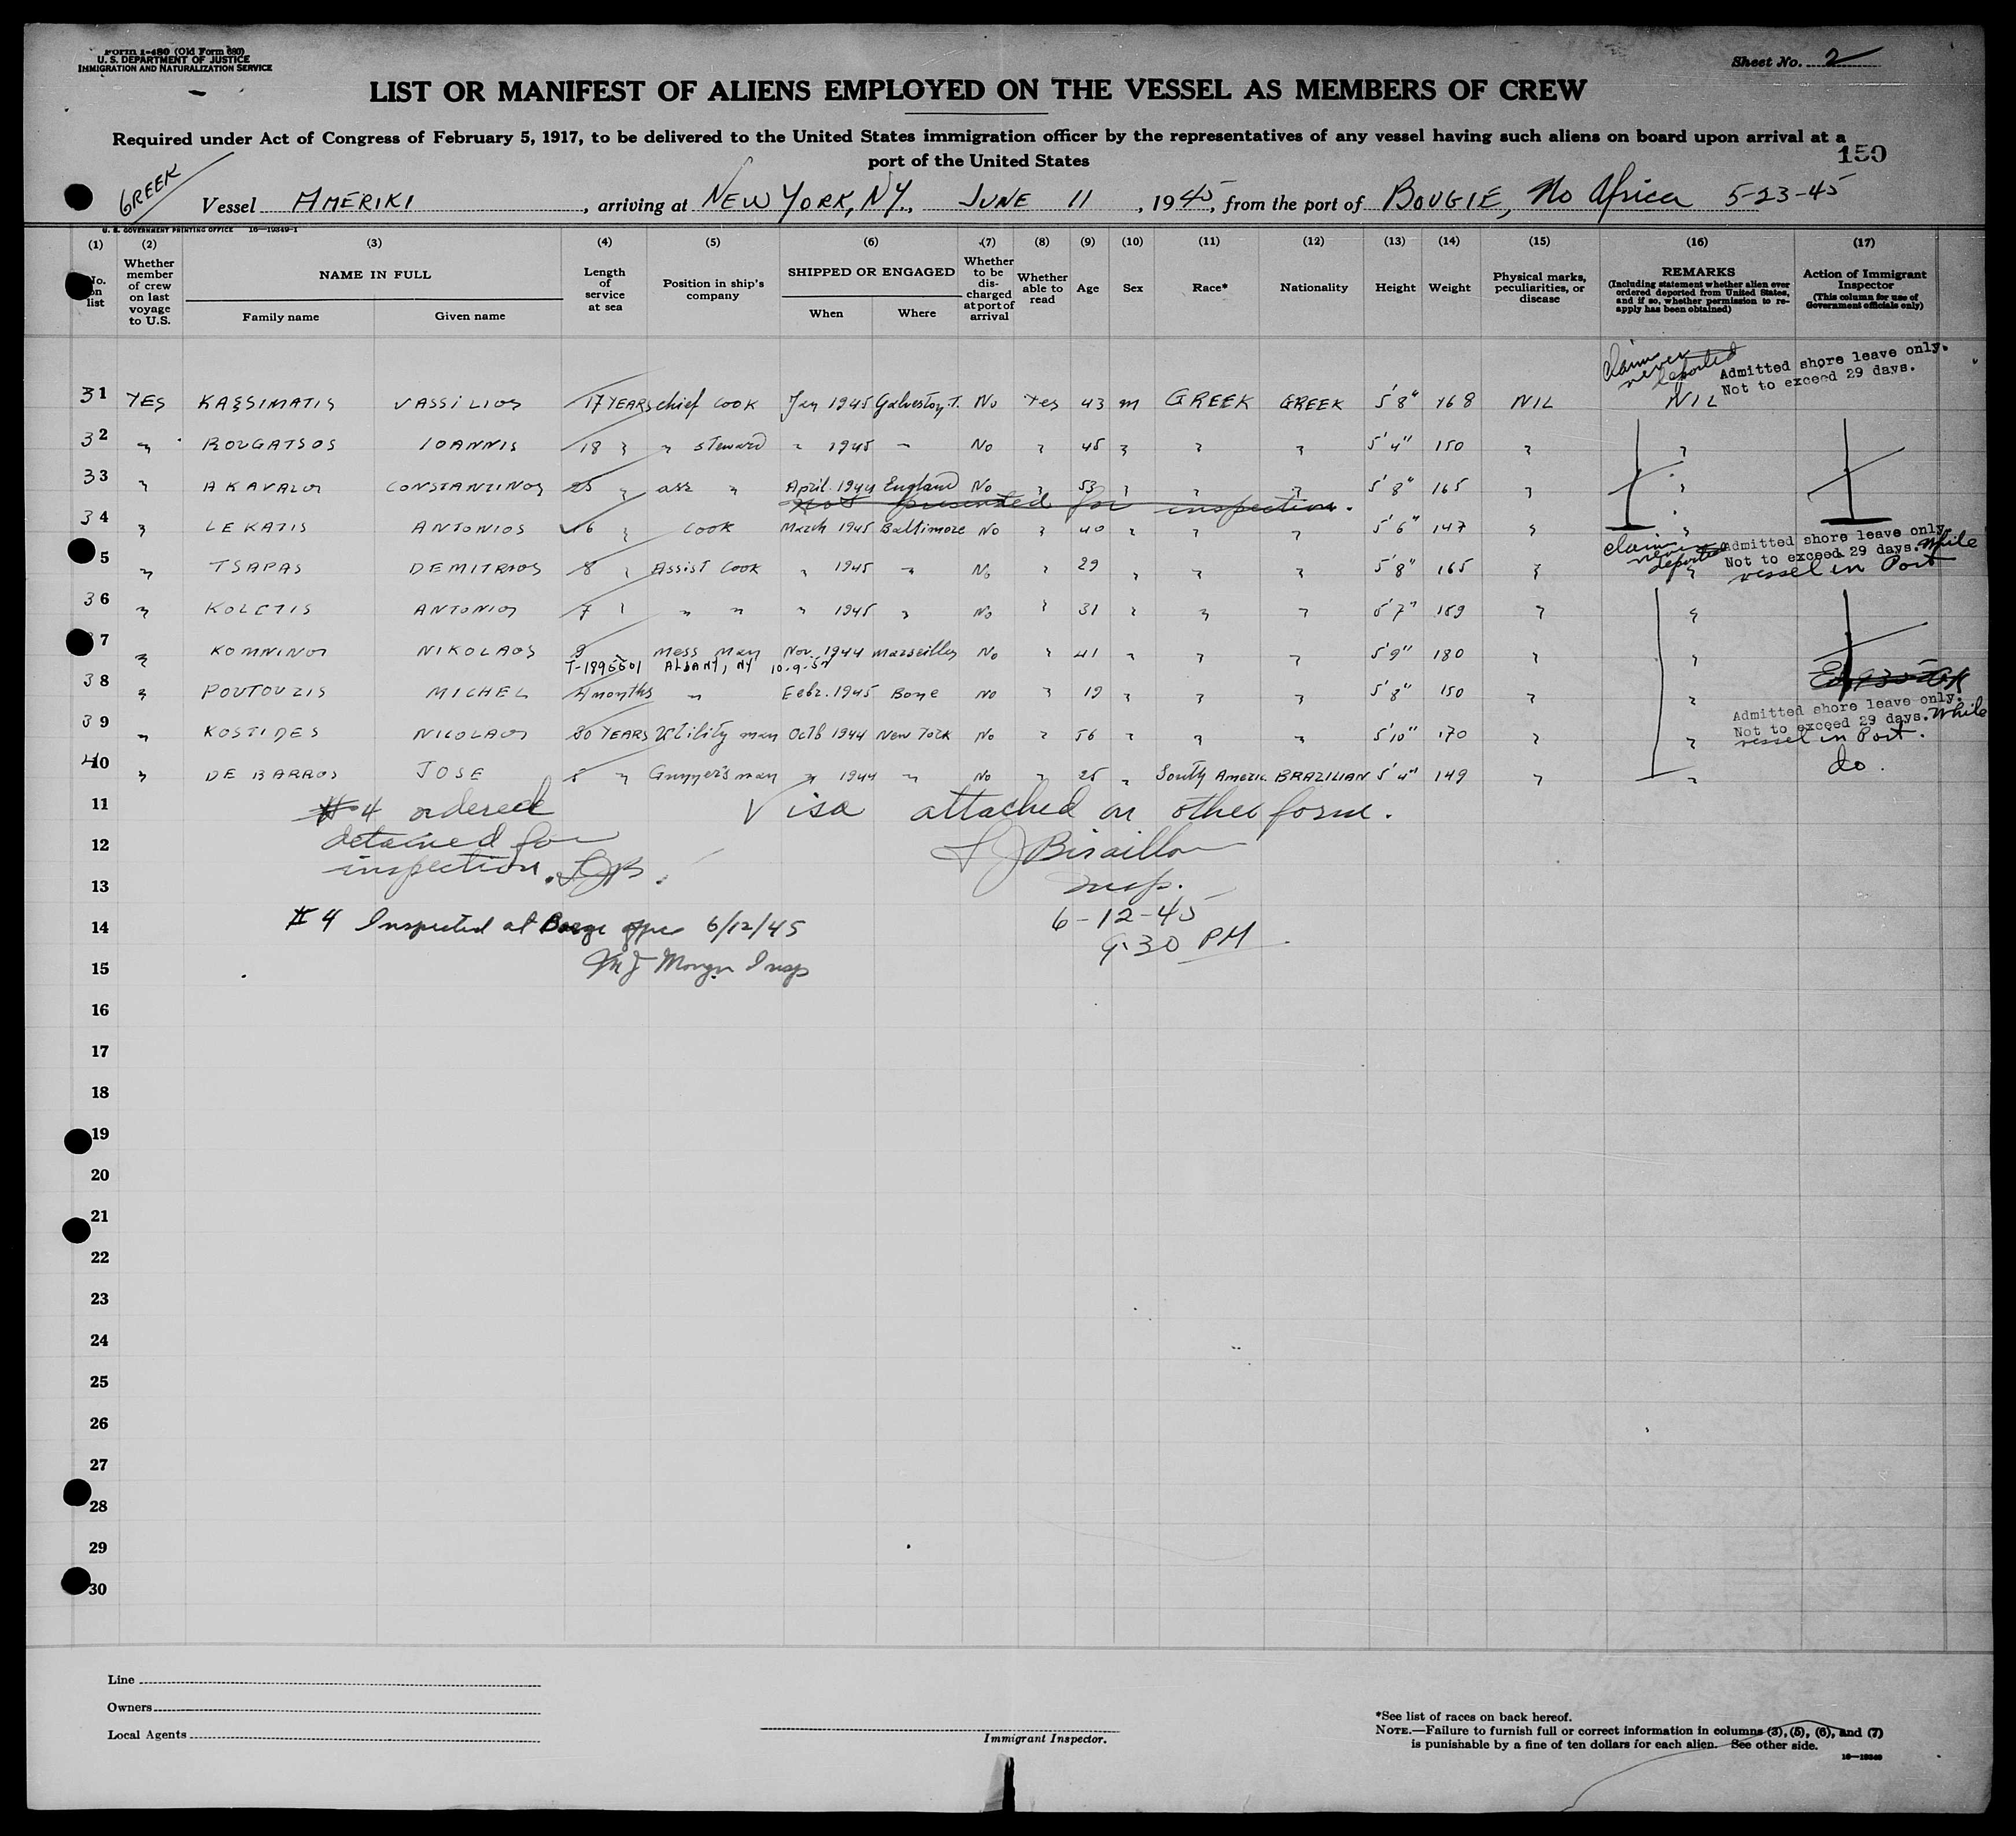 Form I-480 (Old Form 680)
U. S. DEPARTMENT OF JUSTICE
IMMIGRATION AND NATURALIZATION SERVICE
Sheet No. 2
LIST OR MANIFEST OF ALIENS EMPLOYED ON THE VESSEL AS MEMBERS OF CREW
Required under Act of Congress of February 5, 1917, to be delivered to the United States immigration officer by the representatives of any vessel having such aliens on board upon arrival at a
port of the United States
150
GREEK
Vessel AMERIKI, arriving at NEW YORK, NY., JUNE 11, 1945, from the port of BOUGIE, No Africa 5-23-45
U. S. GOVERNMENT PRINTING OFFICE 16—19349-1
(1) (2) (3) (4) (5) (6) (7) (8) (9) (10) (11) (12) (13) (14) (15) (16) (17)
No. on list
Whether member of crew on last voyage to U.S.
NAME IN FULL
Family name Given name
Length of service at sea
Position in ship's company
SHIPPED OR ENGAGED
When Where
Whether to be discharged at port of arrival
Whether able to read
Age
Sex
Race*
Nationality
Height
Weight
Physical marks, peculiarities, or disease
REMARKS
(Including statement whether alien ever ordered deported from United States, and if so, whether permission to reapply has been obtained)
Action of Immigrant Inspector
(This column for use of Government officials only)
claims never deported
Admitted shore leave only.
Not to exceed 29 days.
31 YES KASSIMATIS VASSILIOS 17 YEARS chief cook Jan 1945 Galveston, T. No Yes 43 m GREEK GREEK 5'8" 168 NIL NIL
32 " ROUGATSOS IOANNIS 18 " " steward " 1945 " No " 45 " " " 5'4" 150 " "
33 " AKAVALOS CONSTANTINOS 25 " ass " April 1944 England No " 53 " " " 5'8" 165 " "
not presented for inspection.
34 " LEKATIS ANTONIOS 16 " cook March 1945 Baltimore No " 40 " " " 5'6" 147 " "
claims never deported
Admitted shore leave only.
Not to exceed 29 days. While
vessel in Port
5 " TSAPAS DEMITRIOS 8 " Assist cook " 1945 " No " 29 " " " 5'8" 165 " "
36 " KOLETIS ANTONIOS 7 " " " " 1945 " No " 31 " " " 5'7" 159 " "
37 " KOMNINOS NIKOLAOS 9 mess man Nov. 1944 Marseilles No " 41 " " " 5'9" 180 " "
T-1895501 ALBANY, NY 10-9-57
38 " POUTOUZIS MICHEL 4 months " Febr. 1945 Bone No " 19 " " " 5'8" 150 " "
Admitted shore leave only.
Not to exceed 29 days. While
vessel in Port.
39 " KOSTIDES NICOLAOS 30 YEARS Utility man Octb 1944 New York No " 56 " " " 5'10" 170 " "
40 " DE BARROS JOSE 5 " Gunner's man " 1944 " No " 25 " South Americ. BRAZILIAN 5'4" 149 " "
do.
11 #4 ordered Visa attached on other form.
12 detained for L J Bisaillon
13 inspection. LJB. Insp.
14 #4 Inspected at Barge office 6/12/45 6-12-45
9:30 PM
15 M J Insp
16
17
18
19
20
21
22
23
24
25
26
27
28
29
30
Line
Owners
Local Agents
Immigrant Inspector.
*See list of races on back hereof.
NOTE.—Failure to furnish full or correct information in columns (3), (5), (6), and (7)
is punishable by a fine of ten dollars for each alien. See other side.
16—19349